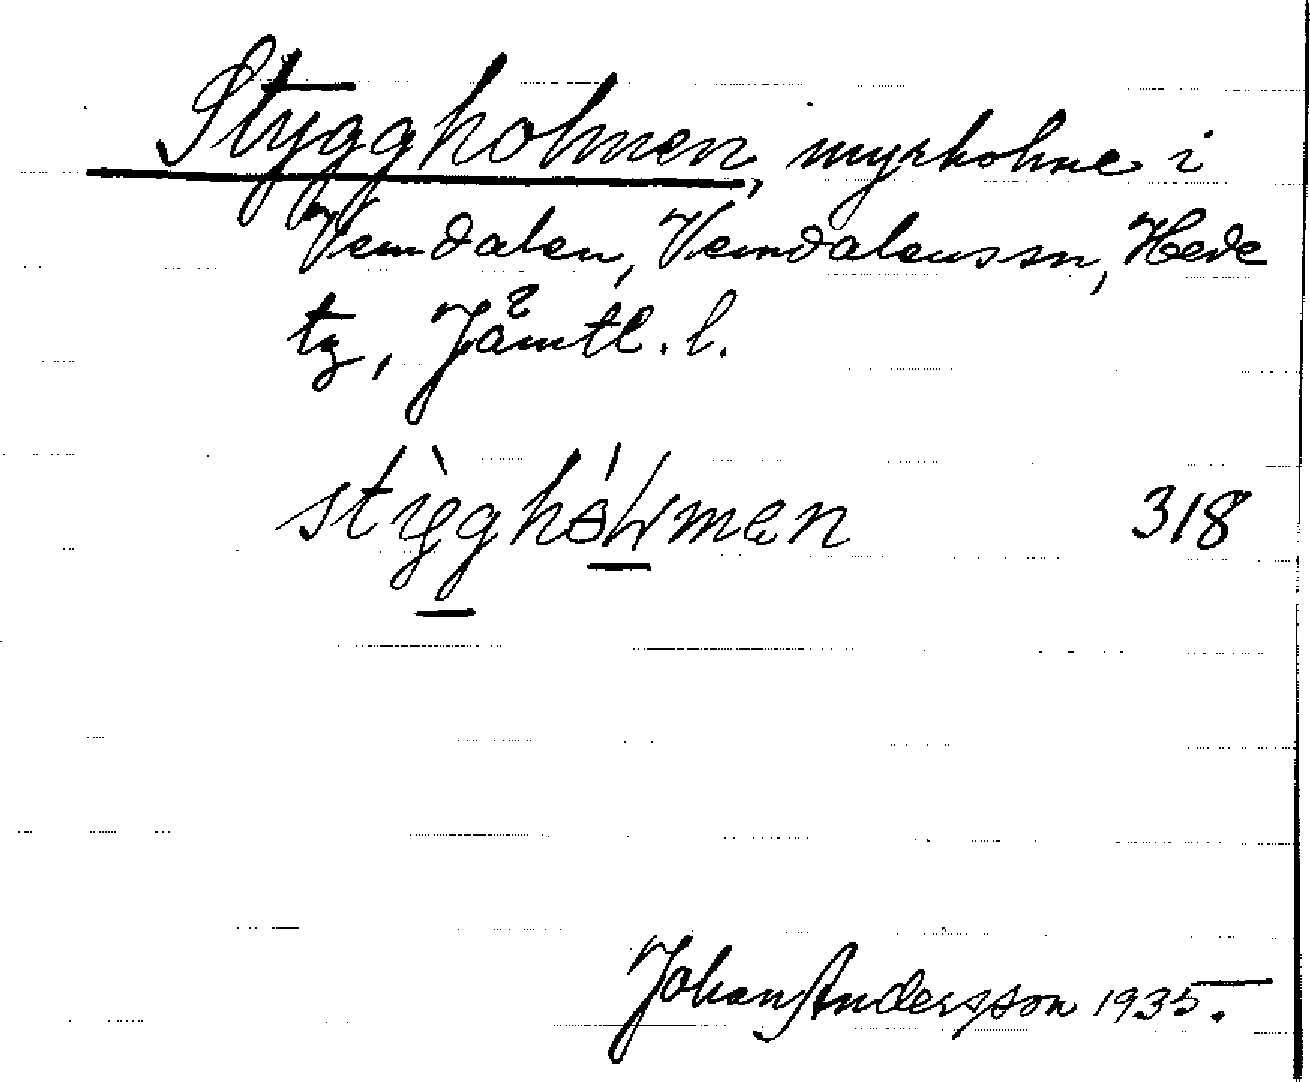 Styggholmen, myrholme i
Vemdalen, Vemdalens sn, Hede
tg, Jämtl. l.
318
Johan Andersson 1935.